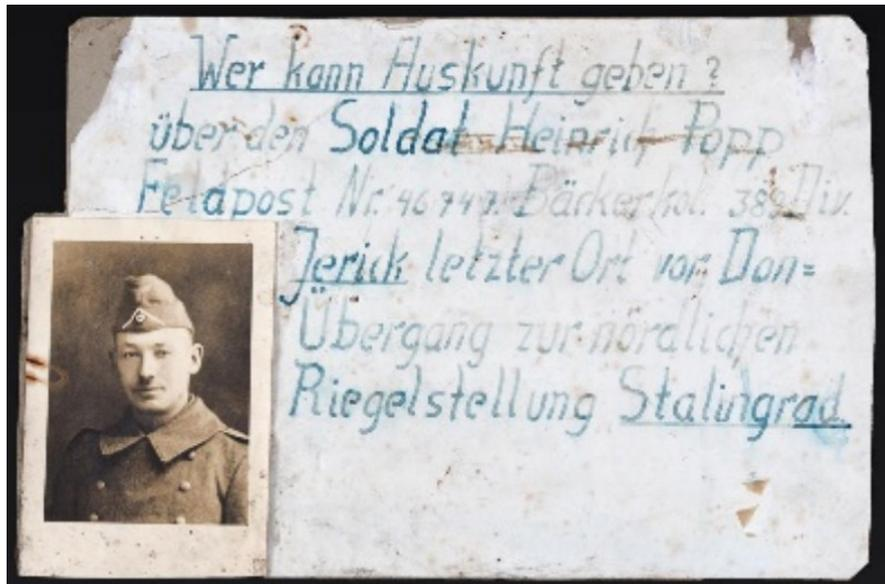 Wer kann Auskunft geben?
über den Soldat Heinrich Popp
Feldpost Nr. 46747. Bäckerkol. 389 Div.
Jerick letzter Ort vor Don=
Übergang zur nördlichen
Riegelstellung Stalingrad.